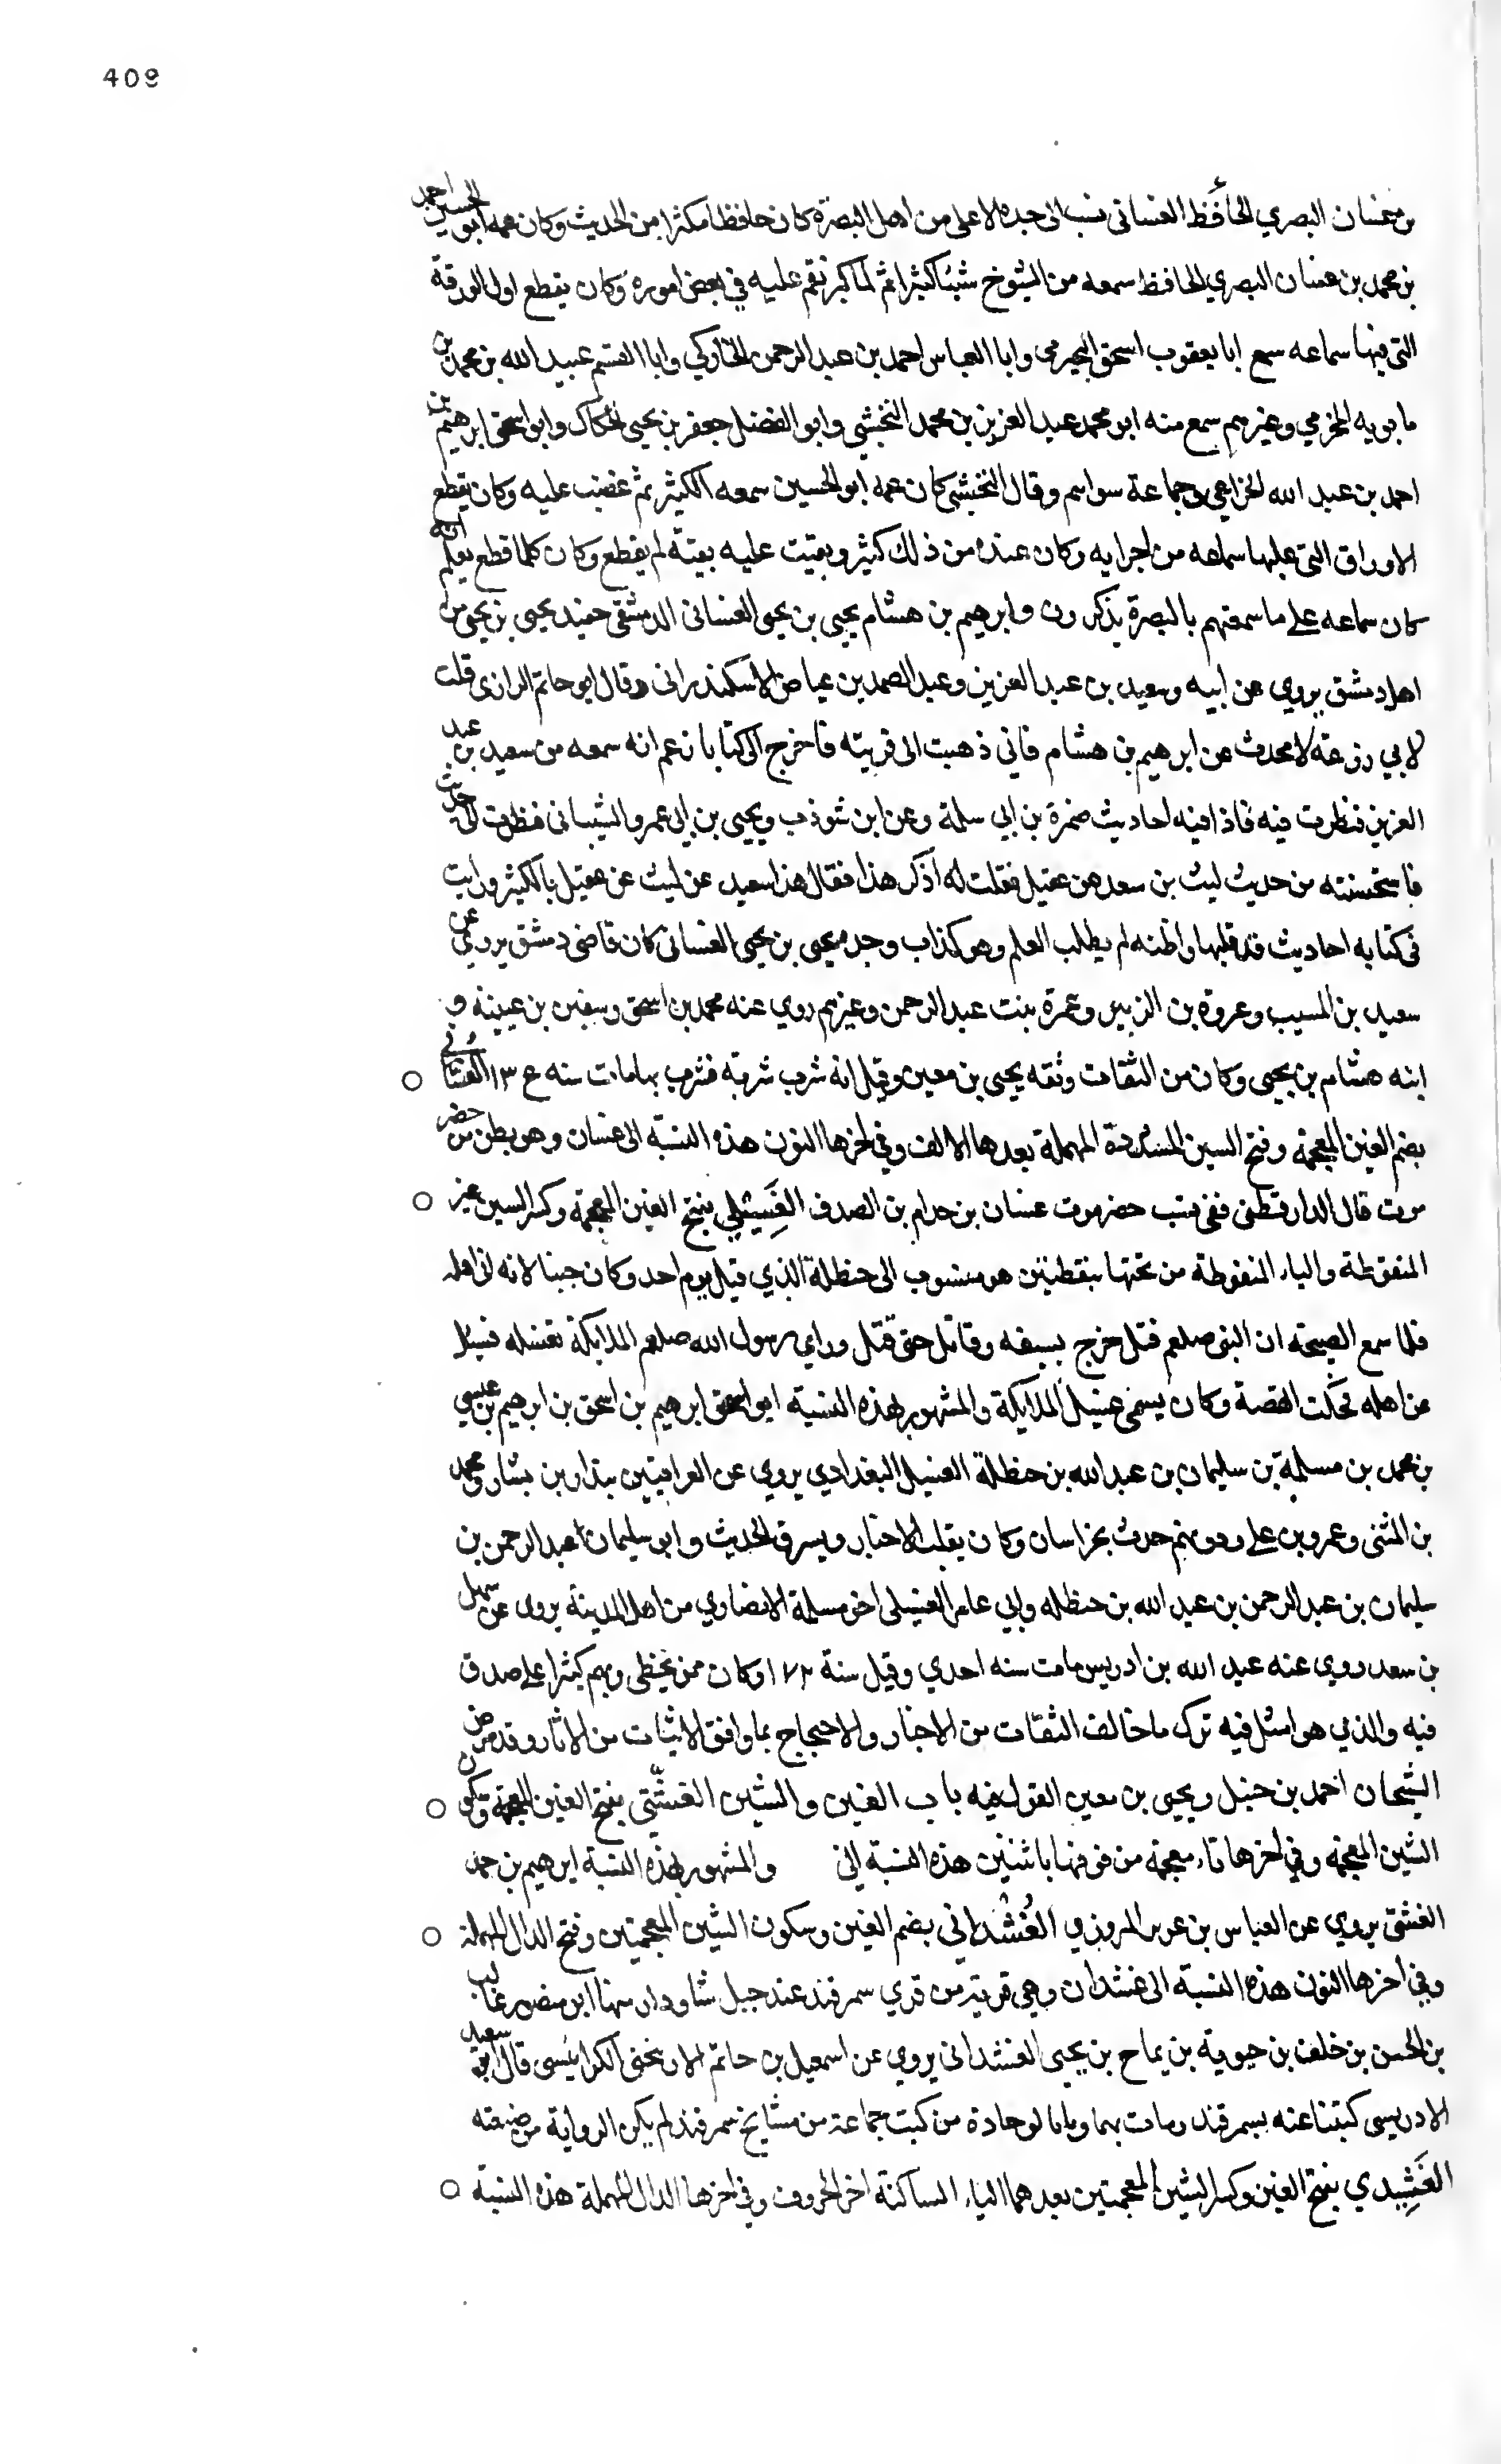 409
بن غسان البصري الحافظ الغساني نسب الى جده الاعلى من اهل البصرة كان حافظا مكثرا من الحديث وكان عمه ابو الحسين احمد
بن محمد بن غسان البصري الحافظ سمعه من الشيوخ شيئا كثيرا ثم لما كبر نقم عليه في بعض اموره وكان يقطع اول الورقة
التي فيها سماعه سمع ابا يعقوب اسحق النجيرمي وابا العباس احمد بن عبد الرحمن الخاركي وابا القسم عبيد الله بن محمد بن
مابويه المخرمي وغيرهم سمع منه ابو محمد عبد العزيز بن محمد النخشبي وابو الفضل جعفر بن يحيى الحكاك وابو اسحق ابرهيم بن
احمد بن عبد الله الخزاعي وجماعة سواهم وقال النخشبي كان عمه ابو الحسين سمعه الكثير ثم غضب عليه وكان يقطع
الاوراق التي عليها سماعه من اجزايه وكان عنده من ذلك كثير وبقيت عليه بقية لم يقطع وكان كلما قطع يعلم انه
كان سماعه على ما سمعتهم بالبصرة يذكرون وابرهيم بن هشام بن يحيى بن يحيى الغساني الدمشقي حفيد يحيى بن يحيى من
اهل دمشق يروي عن ابيه وسعيد بن عبد العزيز وعبد الصمد بن عياض الاسكندراني وقال ابو حاتم الرازي قلت
لابي زرعة لا محدث عن ابرهيم بن هشام فاني ذهبت الى قريته فاخرج الى كتابا زعم انه سمعه من سعيد بن عبد
العزيز فنظرت فيه فاذا فيه احاديث ضمرة بن ابي سلمة وعن ابن شوذب ويحيى بن ابي عمرو الشيباني فنظرت الى حديث
فاستحسنته من حديث ليث بن سعد عن عقيل فقلت له اذكر هذا فقال هذا سعيد عن ليث عن عقيل بالكثير ورايت
في كتابه احاديث قد قلبها واظنه لم يطلب العلم وهو كذاب وجده يحيى بن يحيى الغساني كان قاضي دمشق يروي عن
سعيد بن المسيب وعروة بن الزبير وعمرة بنت عبد الرحمن وغيرهم روي عنه محمد بن اسحق وسفين بن عيينه و
ابنه هشام بن يحيى وكان من الثقات وثقه يحيى بن معين وقيل انه شرب شربة فشرب بها مات سنه ١٣٤ الغُسّاني
بضم الغين المعجمة وفتح السين المشددة المهملة بعدها الالف وفي اخرها النون هذه النسبة الى غسان وهو بطن من حضر
موت قال الدارقطني ففي نسب حضرموت غسان بن حدام بن الصدف الغَسِيلي بفتح الغين المعجمة وكسر السين غير
المنقوطة والياء المنقوطة من تحتها بنقطتين هو منسوب الى حنظلة الذي قتل يوم احد وكان جنبا لانه اتى اهله
فلما سمع الصيحة ان النبي صلعم قتل خرج بسيفه وقاتل حتى قتل وراي رسول الله صلعم الملايكة تغسله فسئل
عن اهله فحكت القصة وكان يسمى غسيل الملايكة والمشهور بهذه النسبة ابو اسحق ابرهيم بن اسحق بن ابرهيم بن عيسى
بن محمد بن مسلمة بن سليمان بن عبد الله بن حنظلة الغسيل البغدادي يروي عن العراقيين بندار بن بشار ومحمد
بن المثنى وعمرو بن علي ودونهم حدث بخراسان وكان يقلب الاخبار ويسرق الحديث وابو سليمان عبد الرحمن بن
سليمان بن عبد الرحمن بن عبد الله بن حنظله وابي عامر الغسيلي اخو مسلمة الانصاري من اهل المدينة يروي عن سهل
بن سعد روي عنه عبد الله بن ادريس مات سنه احدي وقيل سنة ١٧٢ وكان ممن يخطى ويهم كثيرا على صدق
فيه والذي هو امثل فيه ترك ما خالف الثقات من الاخبار والاحتجاج بما وافق الاثبات من الاثار وقد مرض
الشيخان احمد بن حنبل ويحيى بن معين القول فيه باب الغين والشين الغَشْتي بفتح الغين المعجمة وسكون
الشين المعجمة وفي اخرها تاء معجمة من فوقها باثنتين هذه النسبة الى والمشهور بهذه النسبة ابرهيم بن حمد
الغشتي يروي عن العباس بن المروزي الغُشْداني بضم الغين وسكون الشين المعجمتين وفتح الدال المهملة
وفي اخرها النون هذه النسبة الى غشدان وهي قرية من قري سمرقند عند جبل شاودار منها ابن منصور غالب
بن الحسن بن خلف بن حيويه بن يماح بن يحيى الغشداني يروي عن اسمعيل بن حاتم الكرابيسي قال ابو سعد
الادريسي كتبنا عنه بسمرقند ومات بها من كبت جماعة من مشايخ سمرقند لم يكن الرواية من صنعته
الغَشِيدي بفتح الغين وكسر الشين المعجمتين بعدهما الياء الساكنة اخر الحروف وفي اخرها الدال المهملة هذه النسبة